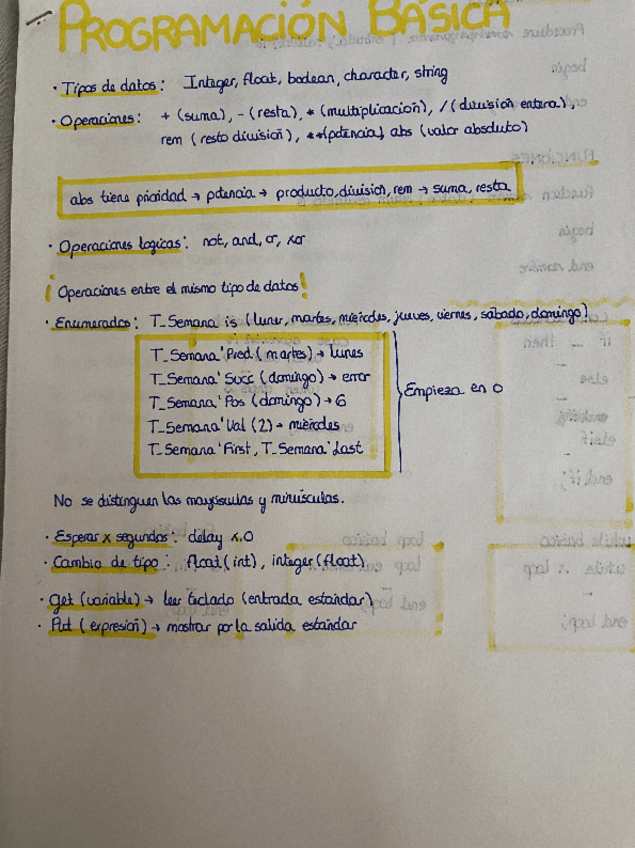 PROGRAMACIÓN BÁSICA
· Tipos de datos: Integer, float, boolean, character, string
· Operaciones: + (suma), - (resta), * (multiplicación), / (división entera),
rem (resto división), **(potencia) abs (valor absoluto)
abs tiene prioridad → potencia → producto, división, rem → suma, resta
· Operaciones logicas: not, and, or, xor
¡Operaciones entre el mismo tipo de datos!
· Enumerados: T_Semana is (lunes, martes, miércoles, jueves, viernes, sábado, domingo)
T_Semana'Pred (martes) → lunes
T_Semana'Succ (domingo) → error
T_Semana'Pos (domingo) → 6
T_Semana'Val (2) → miércoles
T_Semana'First, T_Semana'Last
Empieza en 0
No se distinguen las mayúsculas y minúsculas.
· Esperar x segundos: delay x.0
· Cambio de tipo: float(int), integer(float)
· Get (variable) → leer teclado (entrada estandar)
· Put (expresión) → mostrar por la salida estandar